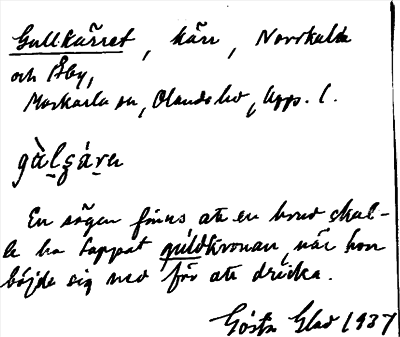 Gullkärret, kärr, Norrkulla
och Åby,
Morkarla sn, Olands hd, Upp. l.
gàlʒárn
En sägen finns att en brud skul-
le ha tappat guldkronan, när hon
böjde sig ned för att dricka.
Gösta Glad 1937